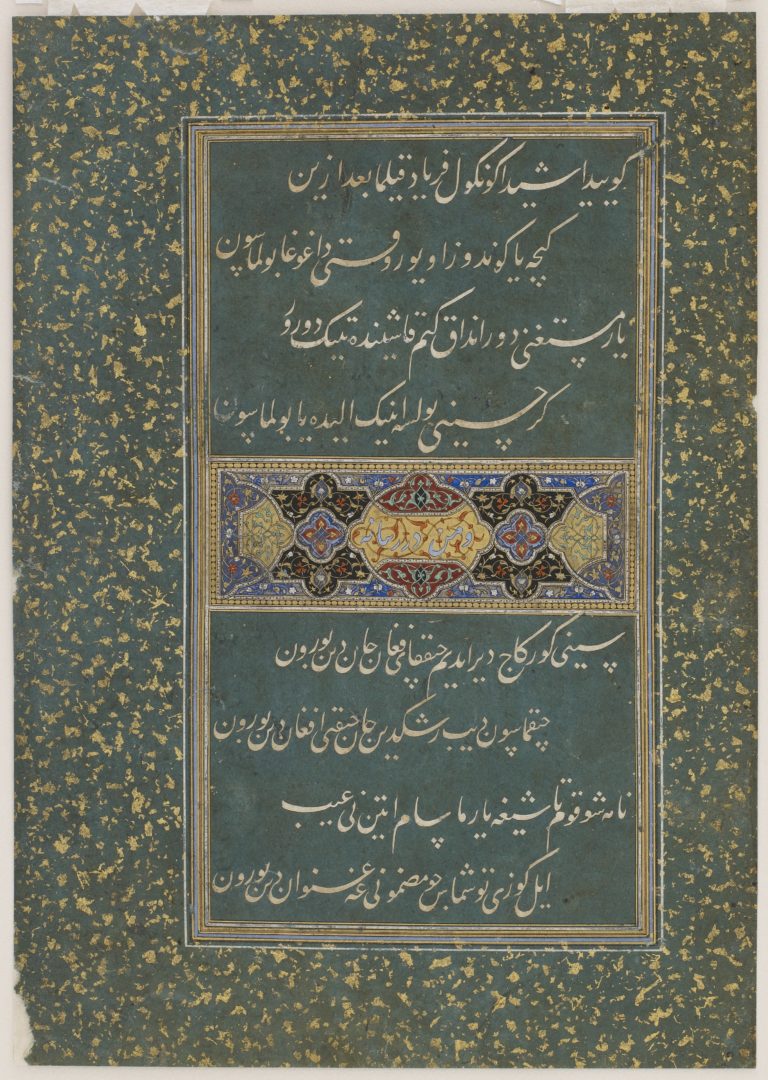 کوییدا شیدا کونکول فریاد قیلما بعد ازین
کیچه یا کوندوز اویور وقتی دا غوغا بولماسون
یار مستغنی دور انداق کیم قاشینده تینک دورور
کر حسینی بولسه انینک الیده یا بولماسون
و من درر
سینی کورکاج دیر ایدیم چیققای فغان جان دین بورون
چیقماسون دیب رشکیدین جان چیقتی افغان دین بورون
نامه شوقوم تاشیغه یارماسام اتین نی عیب
ایل کوزی توشماس مو مضمونی غه عنوان دین بورون